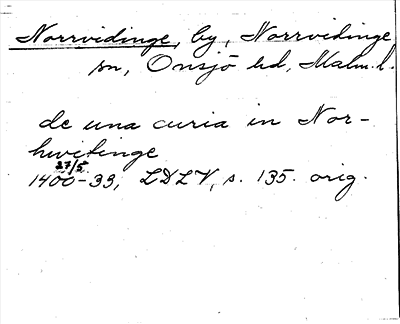 Norrvidinge, by, Norrvidinge
sn, Onsjö hd, Malm. l.
de una curia in Nor-
hwitinge
27/5
1400-33, LDLV, s. 135. orig.